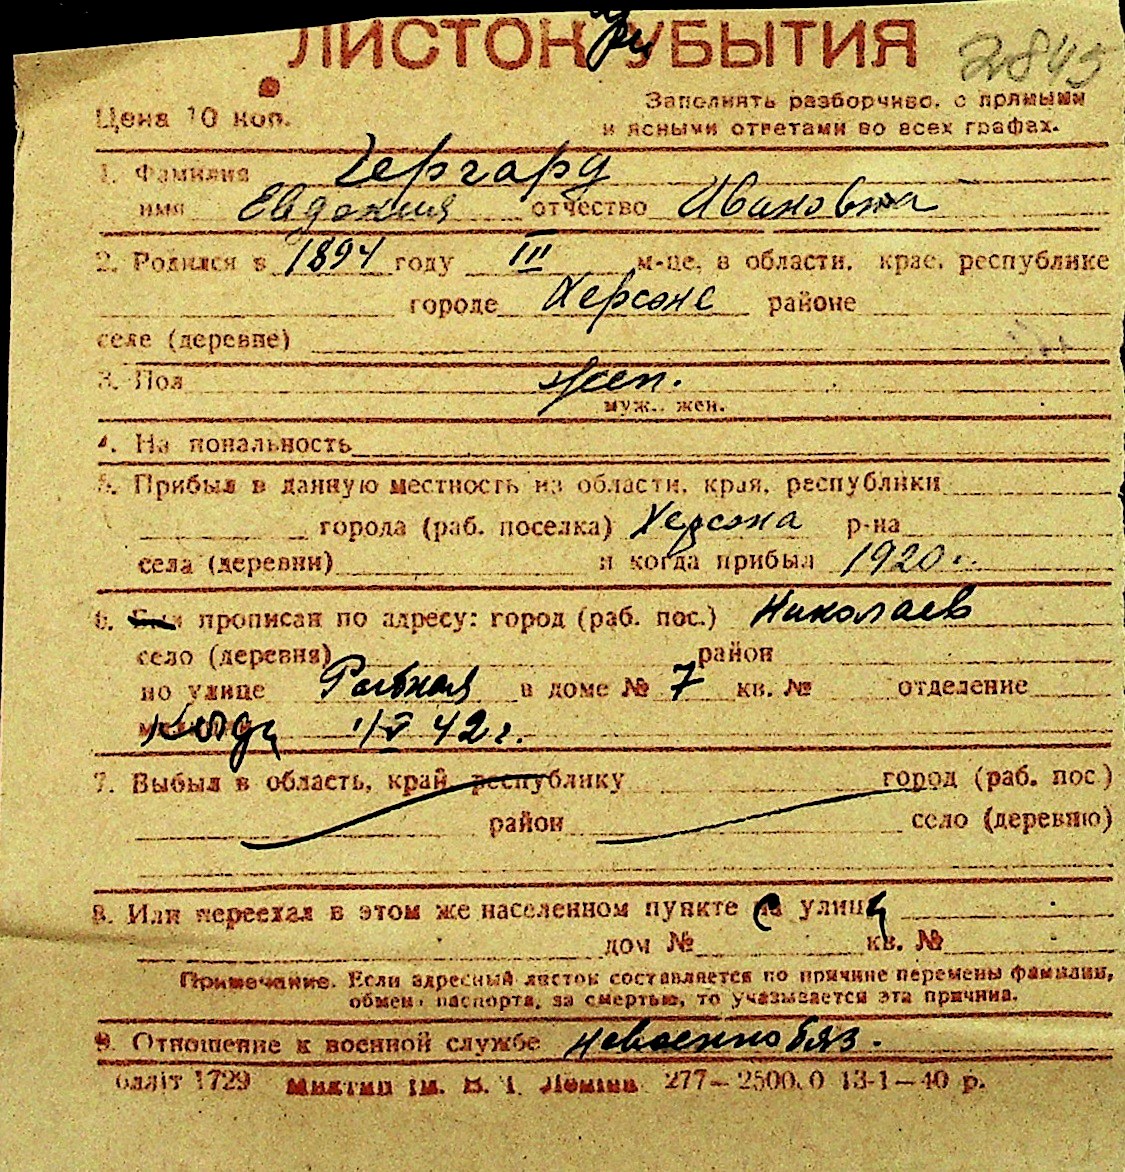 ЛИСТОК УБЫТИЯ
при
2845
Цена 10 коп.
Заполнять разборчиво, с прямыми
и ясными ответами во всех графах.
1. Фамилия Гергард
имя Евдокия отчество Ивановна
2. Родился в 1894 году III м-це, в области, крае, республике
городе Херсоне районе
селе (деревне)
3. Пол жен.
муж., жен.
4. На иональность
5. Прибыл в данную местность из области, края, республики
города (раб. поселка) Херсона р-на
села (деревни) и когда прибыл 1920 г.
6. Был прописан по адресу: город (раб. пос.) Николаев
село (деревня) район
по улице Рыбная в доме № 7 кв. № отделение
Когда 1/V 42 г.
7. Выбыл в область, край республику город (раб. пос)
район село (деревню)
8. Или переехал в этом же населенном пункте с улицы
дом № кв. №
Примечание. Если адресный листок составляется по причине перемены фамилии,
обмена паспорта, за смертью, то указывается эта причина.
9. Отношение к военной службе невоеннобяз.
блліт 1729 Миктип ім. В. І. Леніна 277—2500.0 13-1—40 р.